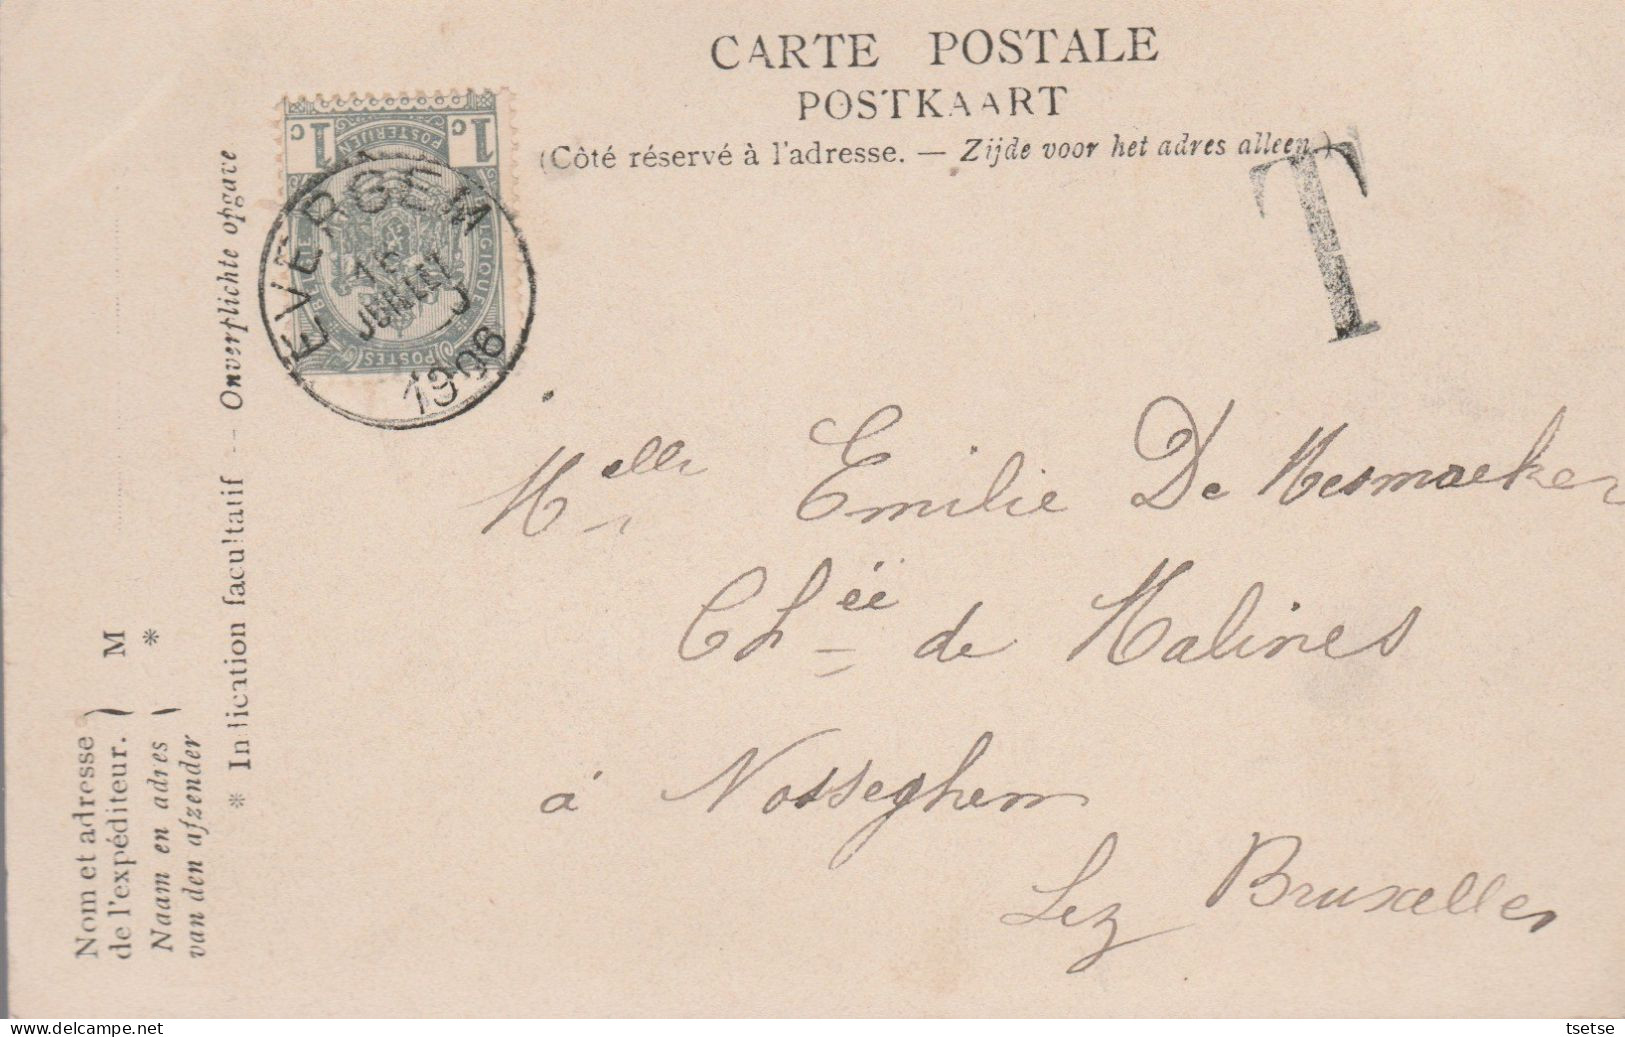 CARTE POSTALE
POSTKAART
(Côté réservé à l'adresse. — Zijde voor het adres alleen.)
T
1 c 1 c
POSTERIJEN
BELGIQUE
POSTES
EVERGEM
1906
Melle Emilie De Mesmaeker
Chée de Malines
à Nosseghem
Lez Bruxelles
Nom et adresse
de l'expéditeur. } M
Naam en adres
van den afzender } *
* Indication facultatif -- Onverplichte opgave
tsetse